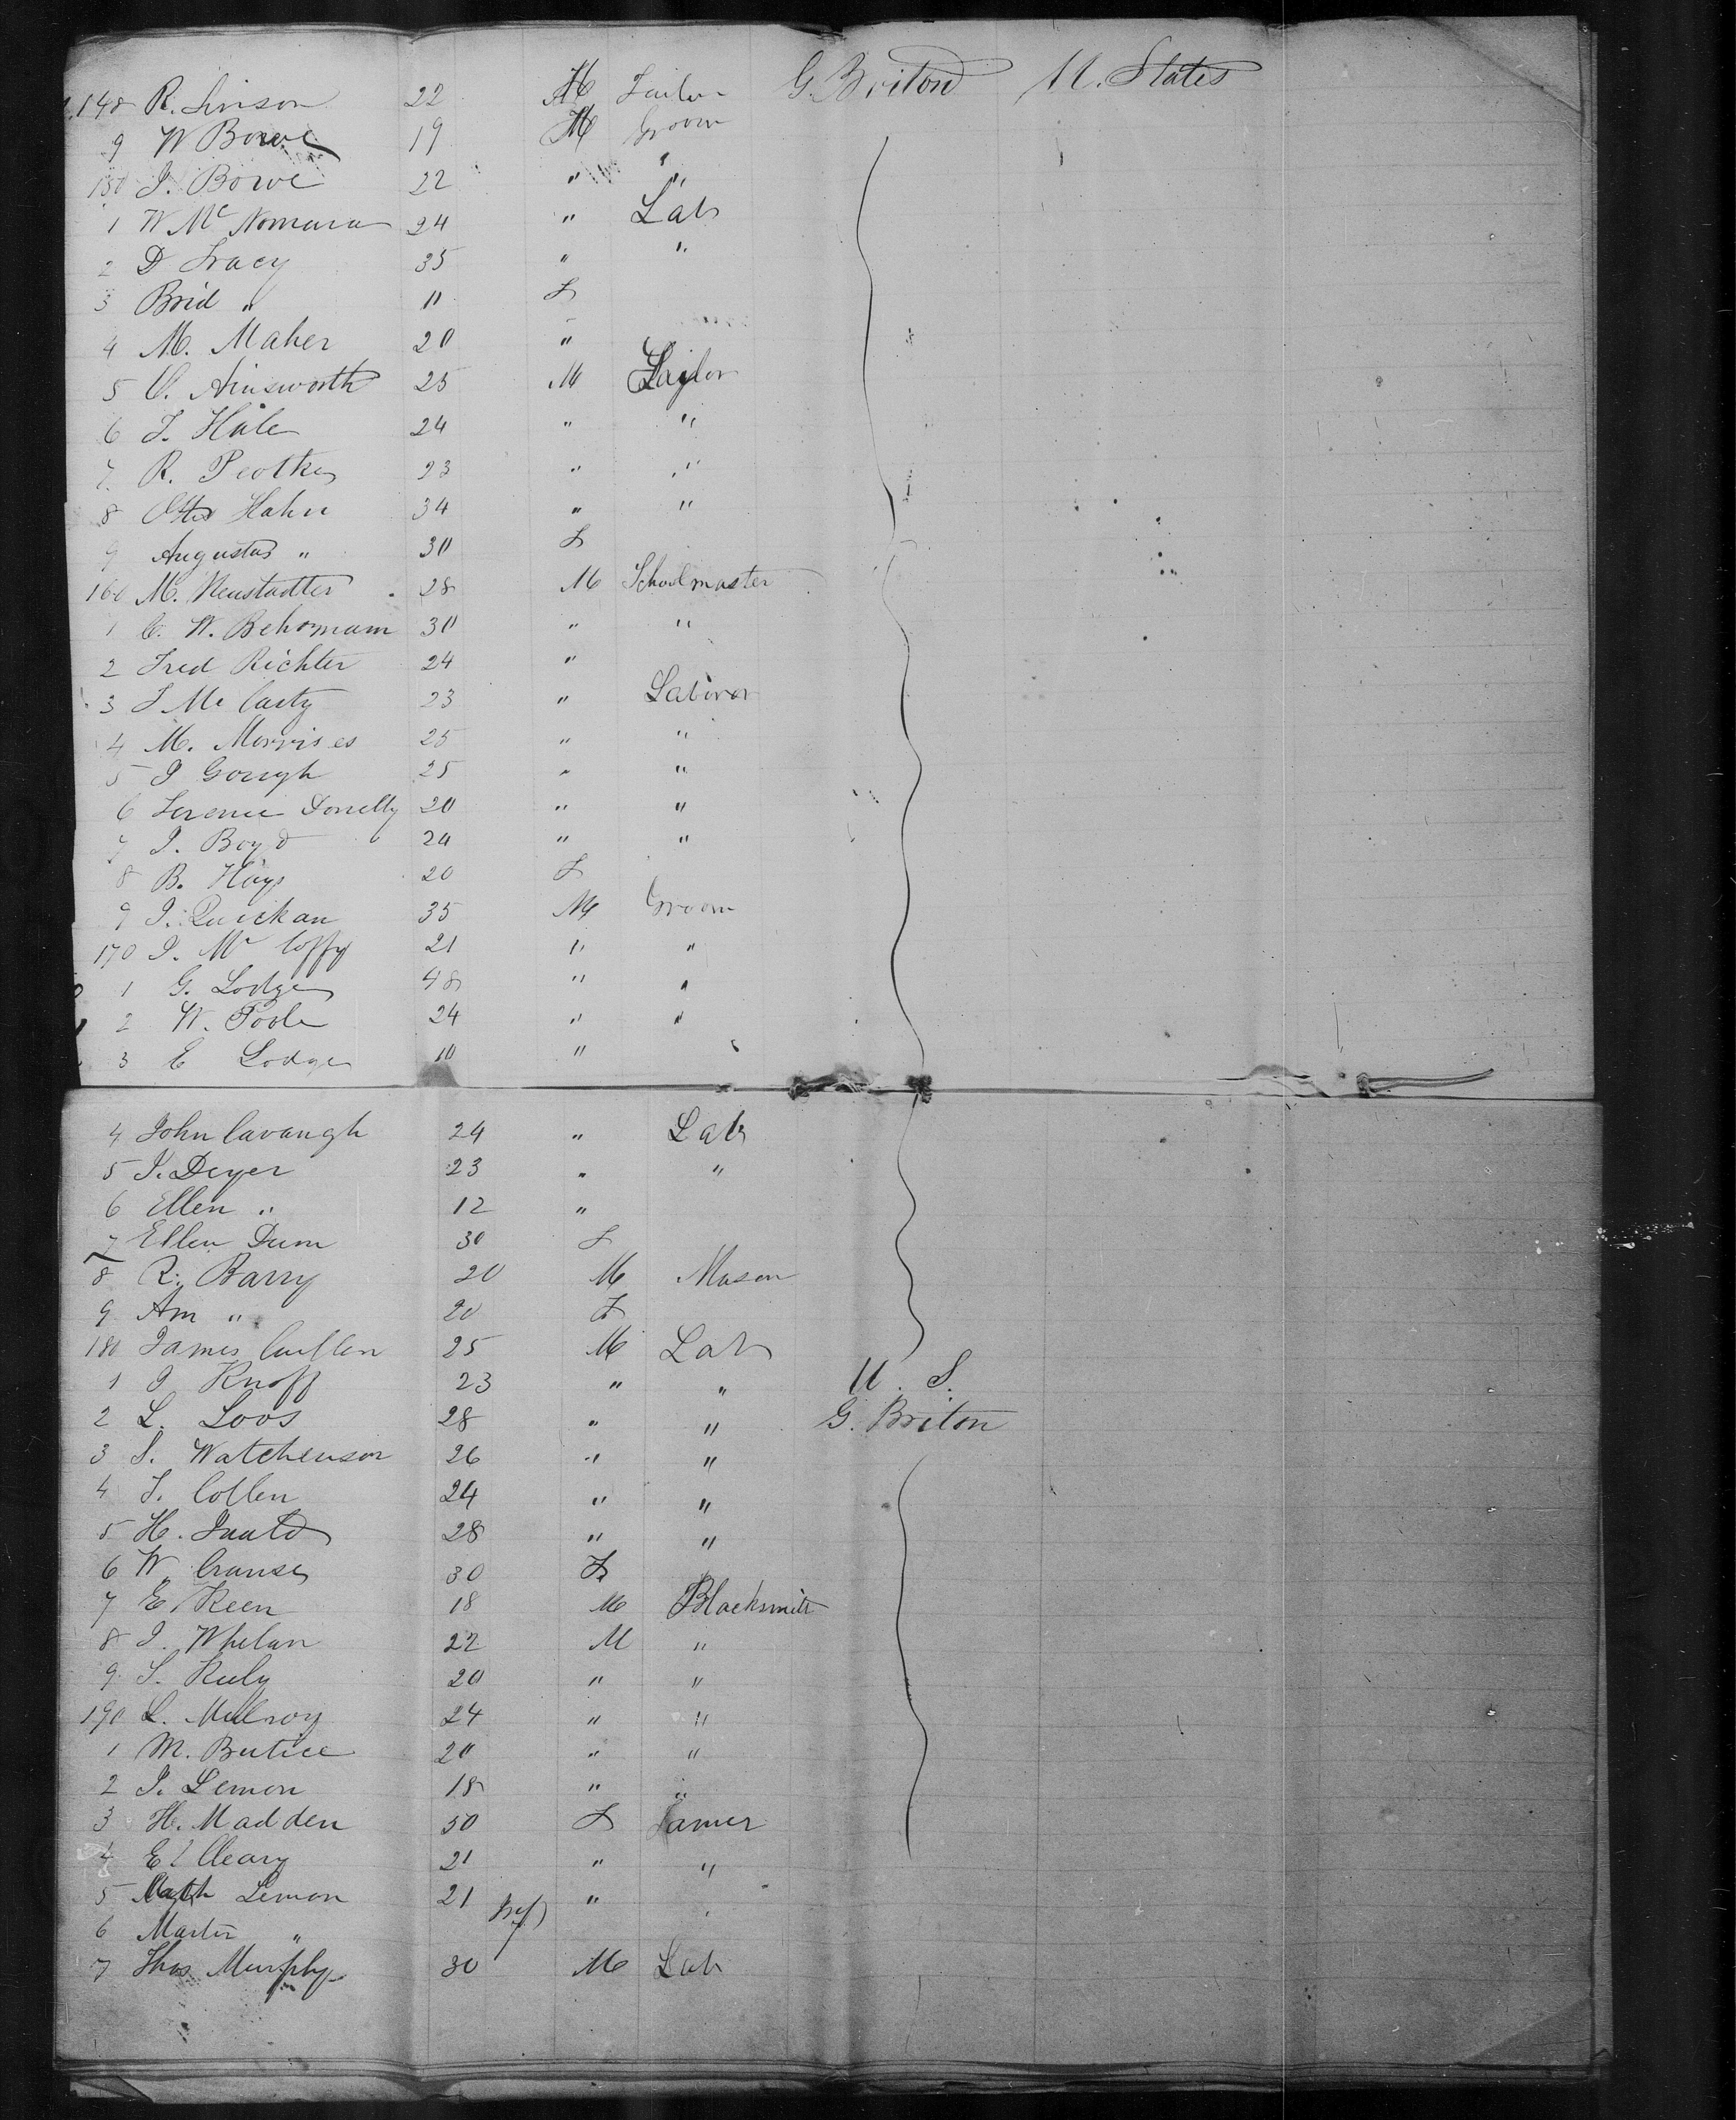 148 R. Linson 22 M Tailor G. Briton U. States
9 W Bowe 19 M Groom
150 J. Bowe 22 " "
1 W Mc Nomara 24 " Lab
2 D Tracy 35 " "
3 Brid " 11 F
4 M. Maher 20 "
5 C. Ainsworth 25 M Tailor
6 T. Hale 24 " "
7 R. Peothe 23 " "
8 Otto Hahn 34 " "
9 Augustas " 30 F
160 M. Neustadter 28 M Schoolmaster
1 C. W. Behrmam 30 " "
2 Fred Richter 24 "
3 T Mc Carty 23 " Laboror
4 M. Morris es 25 " "
5 J Gough 25 " "
6 Terence Donelly 20 " "
7 J. Boyd 24 " "
8 B. Hays 20 F
9 J. Quickan 35 M Groom
170 J. Mc Coffy 21 " "
1 G. Lodge 48 " "
2 W. Poole 24 " "
3 E Lodge 10 "
4 John Cavangh 24 " Lab
5 J. Deyer 23 " "
6 Ellen " 12 "
7 Ellen Dunn 30 F
8 R. Barry 20 M Mason
9 Am " 20 F
180 James Cullen 25 M Lab
1 J Knoff 23 " " U. S.
2 L. Loos 28 " " G. Briton
3 S. Watchenson 26 " "
4 T. Collen 24 " "
5 H. 28 " "
6 W. Crause 30 F
7 E. Keen 18 M Blacksmith
8 J. Whelan 22 M "
9 S. Ruly 20 " "
190 L. Mulroy 24 " "
1 M. Butice 20 " "
2 J. Lemon 18 " "
3 H. Madden 50 F Famer
4 E Cleary 21 " "
5 Cath Lemon 21 "
6 Martin " Inf
7 Thos Murphy 30 M Lab